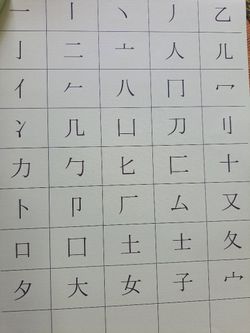 一 丨 丶 丿 乙
亅 二 亠 人 儿
亻 𠂉 八 冂 冖
冫 几 凵 刀 刂
力 勹 匕 匚 十
卜 卩 厂 厶 又
口 囗 土 士 夂
夕 大 女 子 宀